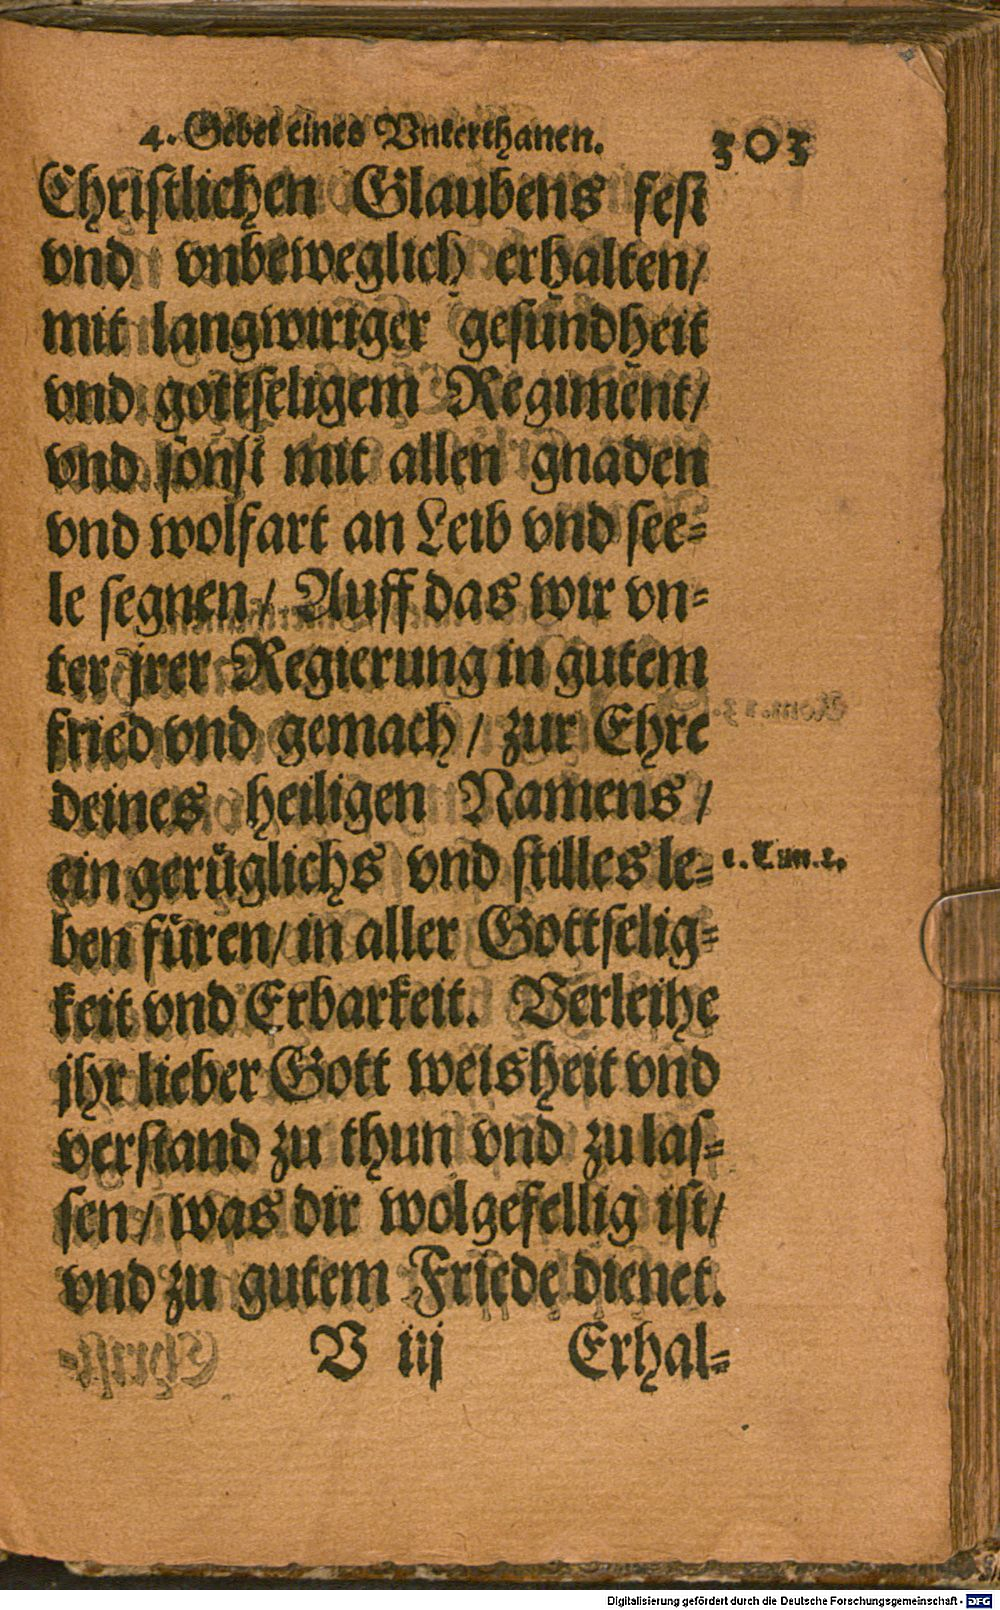 4. Gebet eines Vnterthanen. 303
Christlichen Glaubens fest
vnd vnbeweglich erhalten/
mit langwiriger gesundheit
vnd gottseligem Regiment/
vnd sonst mit allen gnaden
vnd wolfart an Leib vnd see-
le segnen/ Auff das wir vn-
ter jrer Regierung in gutem
fried vnd gemach/ zur Ehre
deines heiligen Namens/
ein gerüglichs vnd stilles le- 1. Tim. 2.
ben füren/ in aller Gottselig-
keit vnd Erbarkeit. Verleihe
jhr lieber Gott weisheit vnd
verstand zu thun vnd zu las-
sen/ was dir wolgefellig ist/
vnd zu gutem Friede dienet.
V iij Erhal-
Digitalisierung gefördert durch die Deutsche Forschungsgemeinschaft - DFG